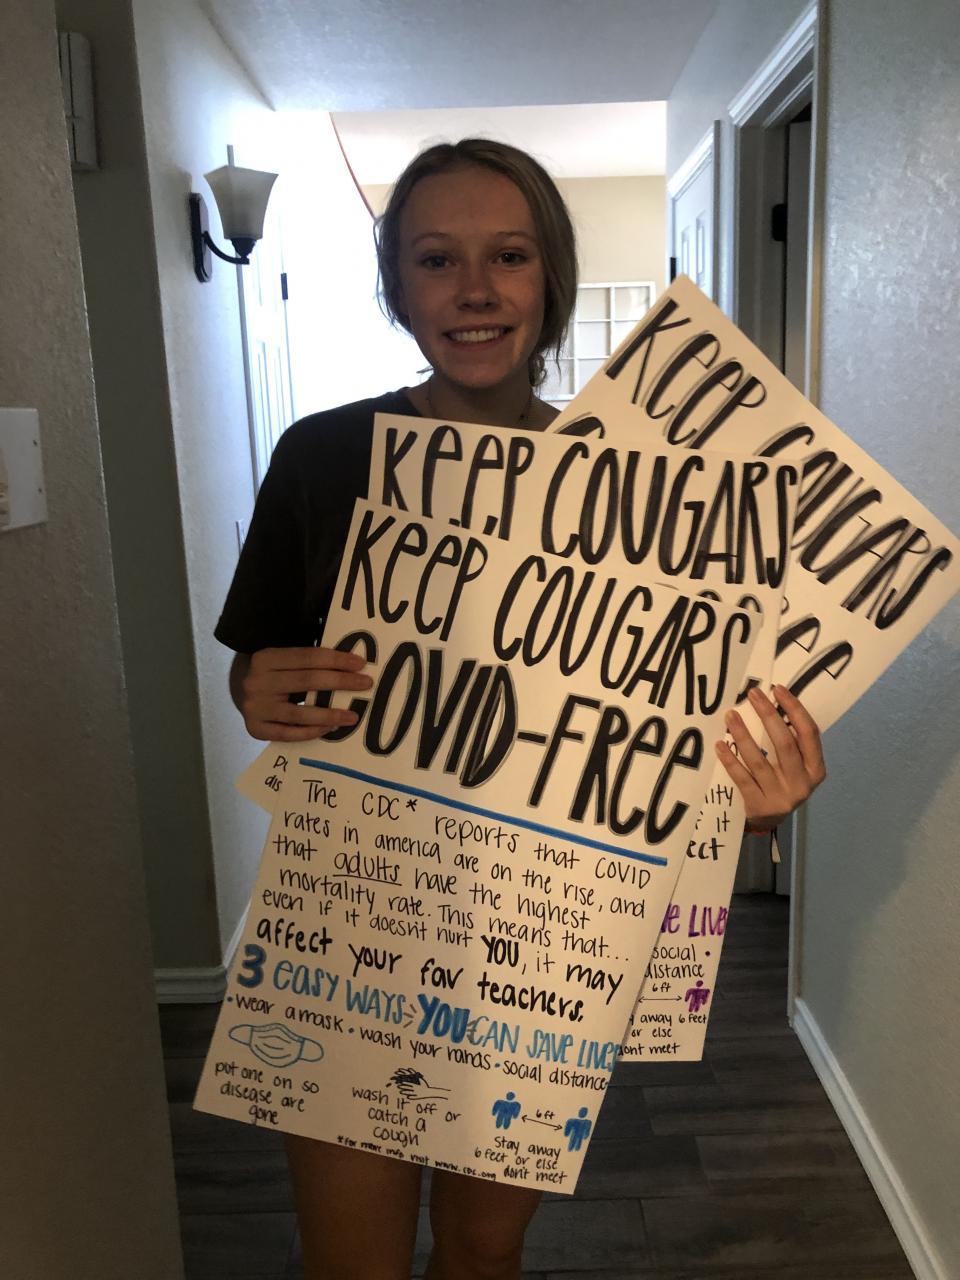 KEEP COUGARS
KEEP COUGARS
KEEP COUGARS
COVID-FREE
The CDC* reports that COVID
rates in america are on the rise, and
that adults have the highest
mortality rate. This means that...
even if it doesn't hurt YOU, it may
affect your fav teachers.
3 easy WAYS YOU CAN SAVE LIVES
• wear a mask • wash your hands • social distance
put one on so
disease are
gone
wash it off or
catch a
cough
6ft
stay away
6 feet or else
don't meet
*for more info visit www.cdc.org
dis
lity
f it
ect
e LIVE
social •
distance
6ft
away 6 feet
or else
dont meet